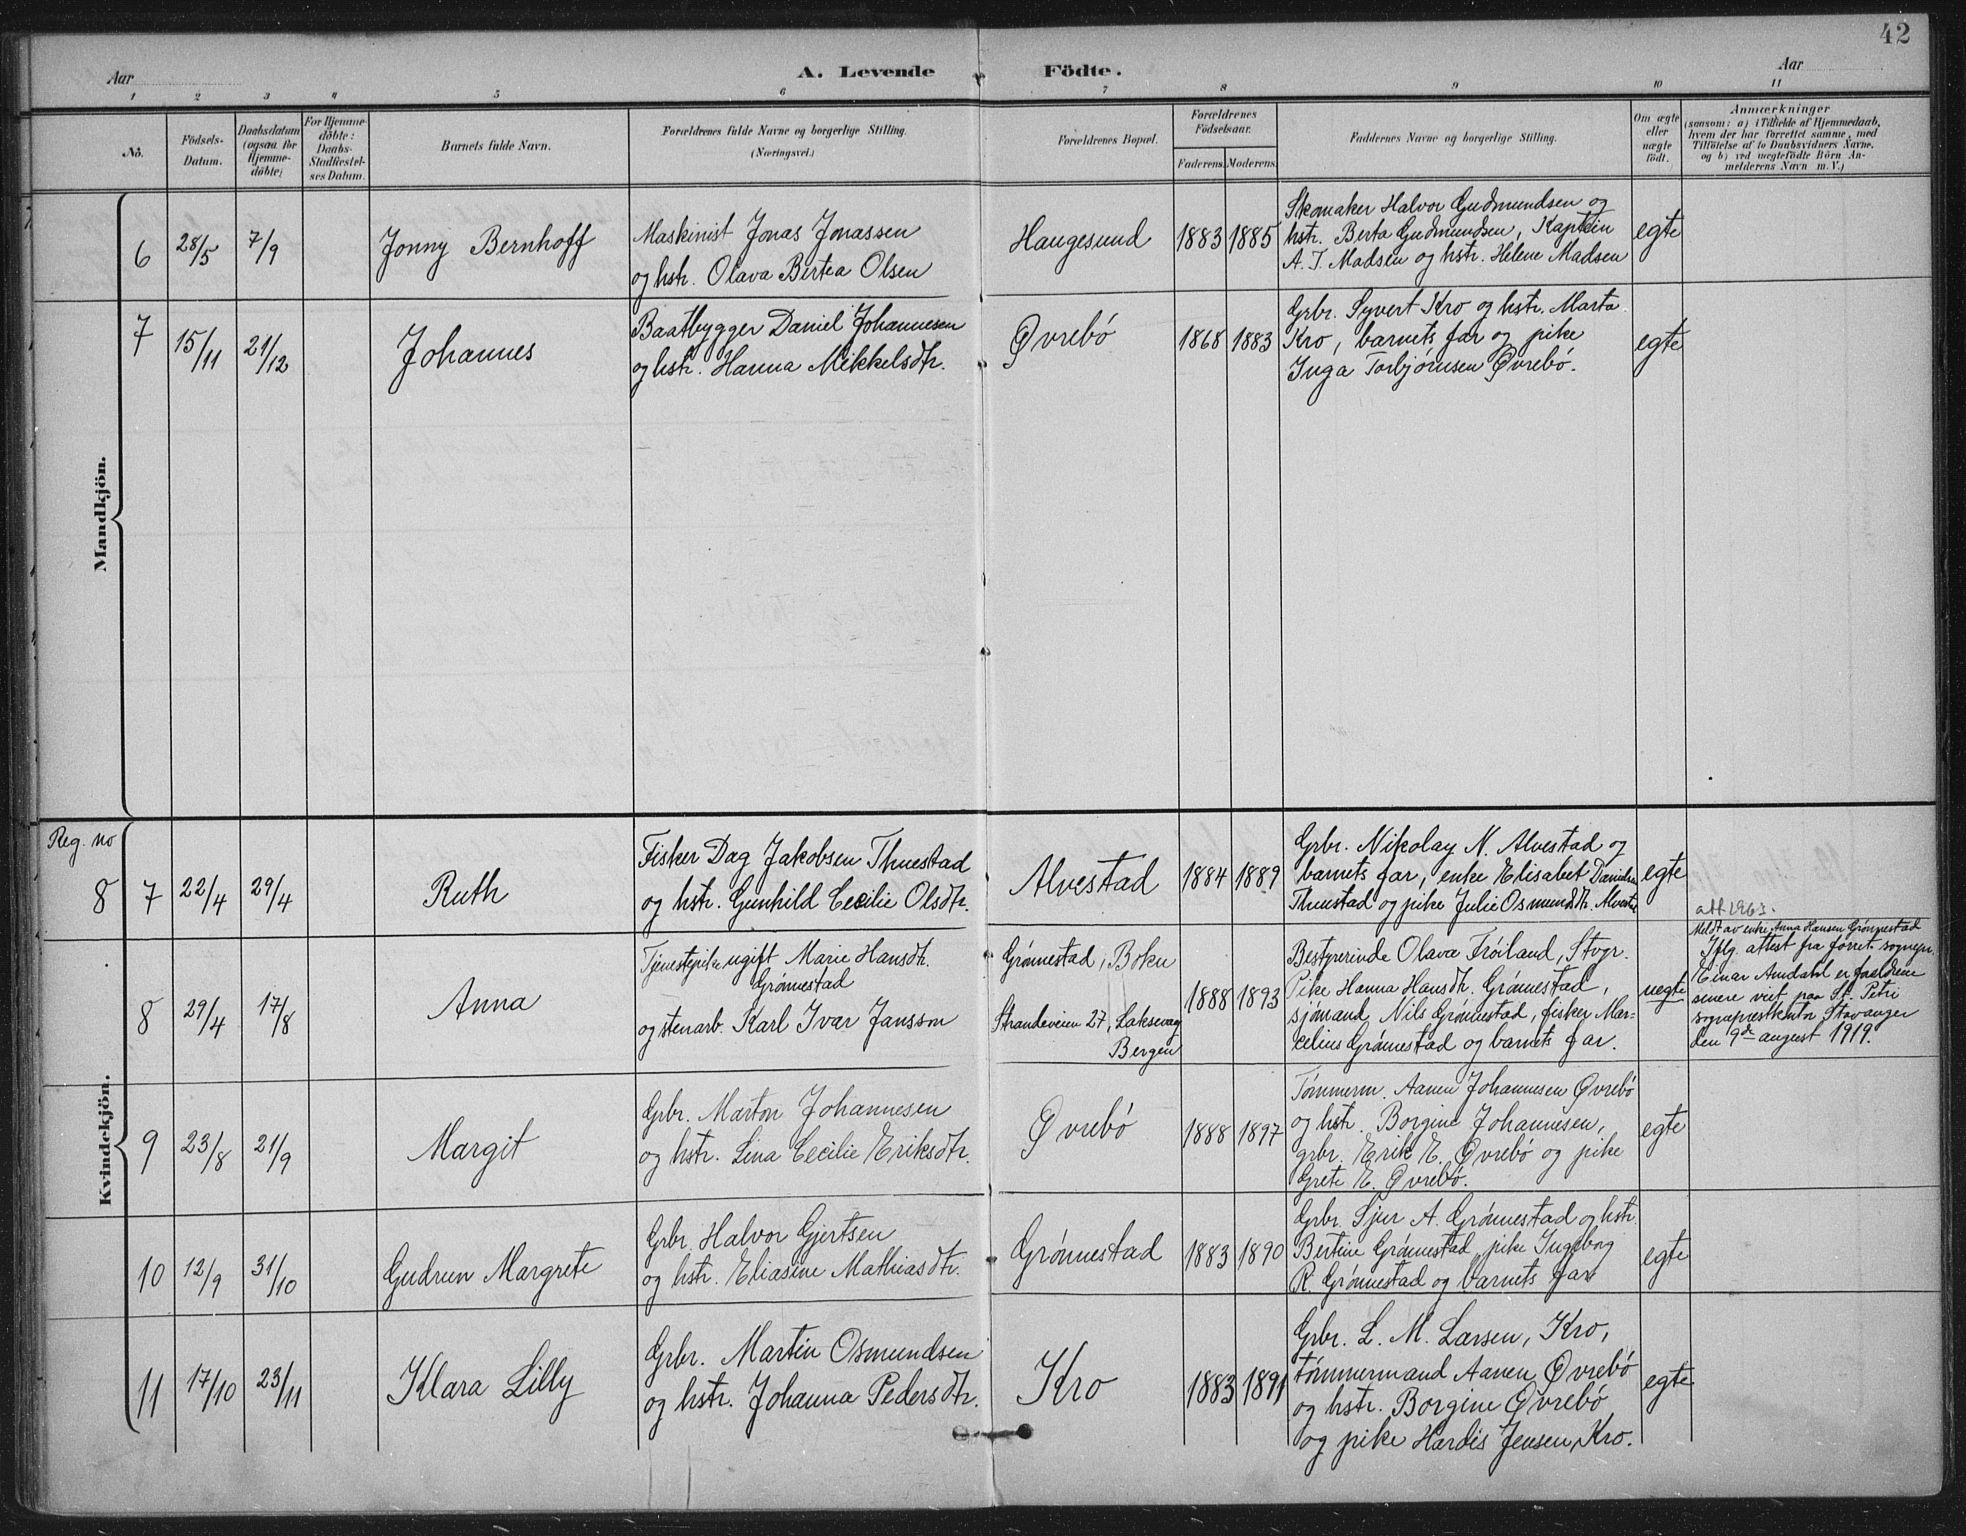 42
Aar
A. Levende
Födte.
Aar
1 2 3 4 5 6 7 8 9 10 11
No.
Födsels-
Datum.
Daabsdatum
(ogsaa for
Hjemme-
döbte)
For Hjemme-
döbte:
Daabs-
Stadfæstel-
ses Datum.
Barnets fulde Navn.
Forældrenes fulde Navne og borgerlige Stilling.
(Næringsvei.)
Forældrenes Bopæl.
Forældrenes
Födselsaar.
Faderens. Moderens.
Faddernes Navne og borgerlige Stilling.
Om ægte
eller
uægte
födt.
Anmærkninger
(saasom: a) i Tilfælde af Hjemmedaab,
hvem der har forrettet samme, med
Tilföielse af to Daabsvidners Navne,
og b) ved uægtefödte Börn An-
melderens Navn m. V.)
Mandkjön.
6 28/5 7/9 Jonny Bernhoff
Maskinist Jonas Jonassen
og hstr. Olava Bertea Olsen
Haugesund 1883 1885
Skomaker Halvor Gudmundsen og
hstr. Berta Gudmundsen, Kaptein
A. T. Madsen og hstr. Helene Madsen
egte
7 15/11 21/12 Johannes
Baatbygger Daniel Johannesen
og hstr. Hanna Mikkelsdtr.
Øvrebó 1868 1883
Grbr. Syvert Kro og hstr. Marta
Kro, barnets far og pike
Inga Torbjörnsen Øvrebó.
egte
Kvindekjön.
Reg. no
8 7 22/4 29/4 Ruth
Fisker Dag Jakobsen Thuestad
og hstr. Gunhild Cecilie Olsdtr.
Alvestad 1884 1889
Grbr. Nikolay N. Alvestad og
barnets far, enke Elisabet Danielsen
Thuestad og pike Julie Osmundsdtr. Alvestad
egte
8 29/4 17/8 Anna
Tjenestepike ugift Marie Hansdtr.
Grónnestad
og stenarb. Karl Ivar Jansson
Grónnestad, Bokn
Strandeveien 27, Laksevaag
Bergen
1888 1893
Bestyrerinde Olava Fróiland, Stvgr.
Pike Hanna Hansdtr. Grónnestad,
sjómand Nils Grónnestad, fisker Mar=
cilius Grónnestad og barnets far.
uegte
att 1963.
Meldt av enke Anna Hansen Grónnestad
Iflg. attest fra forret. sognepr.
Einar Amdahl er forældrene
senere viet paa St. Petri
sogneprestkontor Stavanger
den 9de august 1919.
9 23/8 21/9 Margit
Grbr. Marton Johannesen
og hstr. Lina Cecilie Eriksdtr.
Øvrebó 1888 1897
Tómmerm. Aanen Johannesen Øvrebó
og hstr. Borgine Johannesen,
grbr. Erik E. Øvrebó og pike
Grete E. Øvrebó.
egte
10 12/9 31/10 Gudrun Margrete
Grbr. Halvor Gjertsen
og hstr. Eliasine Mathiasdtr.
Grónnestad 1883 1890
Grbr. Sjur A. Grónnestad og hstr.
Bertine Grónnestad, pike Ingeborg
R. Grónnestad og barnets far
egte
11 17/10 23/11 Klara Lilly
Grbr. Martin Osmundsen
og hstr. Johanna Pedersdtr.
Kro 1883 1891
Grbr. L. M. Larsen, Kro,
tómmermand Aanen Øvrebó
og hstr. Borgine Øvrebó
og pike Hardis Jensen, Kro.
egte